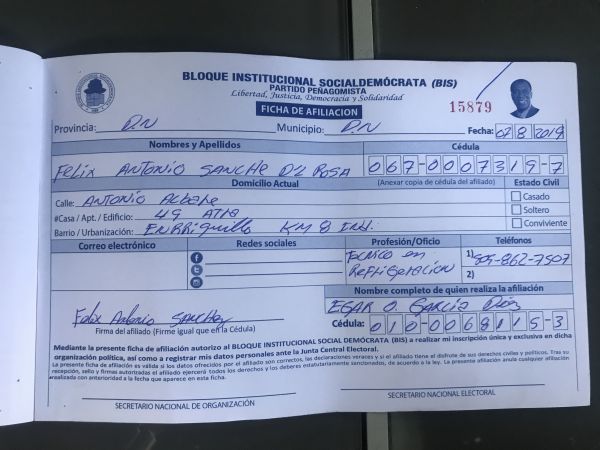 BLOQUE INSTITUCIONAL SOCIALDEMÓCRATA (BIS)
PARTIDO PEÑAGOMISTA
Libertad, Justicia, Democracia y Solidaridad
FICHA DE AFILIACION
15879
Provincia: D.N Municipio: D.N Fecha: 07/8/2019
Nombres y Apellidos Cédula
FELIX ANTONIO SANCHE DE ROSA 067-0007319-7
Domicilio Actual (Anexar copia de cédula del afiliado) Estado Civil
Calle: ANTONIO Casado
#Casa / Apt. / Edificio: 49 Soltero
Barrio / Urbanización: ENRRIQUILLO KM 8 Conviviente
Correo electrónico Redes sociales Profesión/Oficio Teléfonos
TECNICO EN REFRIGERACION
1) 809-862-7507
2)
Nombre completo de quien realiza la afiliación
EGAR O. GARCIA
Felix Antonio SANCHEZ
Cédula: 010-0068115-3
Firma del afiliado (Firme igual que en la Cédula)
Mediante la presente ficha de afiliación autorizo al BLOQUE INSTITUCIONAL SOCIAL DEMÓCRATA (BIS) a realizar mi inscripción única y exclusiva en dicha
organización política, así como a registrar mis datos personales ante la Junta Central Electoral.
La presente ficha de afiliación es válida si los datos ofrecidos por el afiliado son correctos, las declaraciones veraces y si el afiliado tiene el disfrute de sus derechos civiles y políticos. Tras su
recepción, sello y firmas autorizadas el afiliado ejercerá todos los derechos y los deberes estatutariamente sancionados, de acuerdo a la ley. La presente afiliación anula cualquier afiliación
realizada con anterioridad a la fecha que aparece en esta ficha.
SECRETARIO NACIONAL DE ORGANIZACIÓN SECRETARIO NACIONAL ELECTORAL